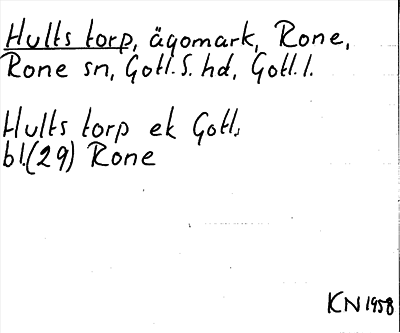 Hults torp, ägomark, Rone,
Rone sn, Gotl. S. hd, Gotl. l.
Hults torp ek Gotl.
bl.(29) Rone
KN 1958